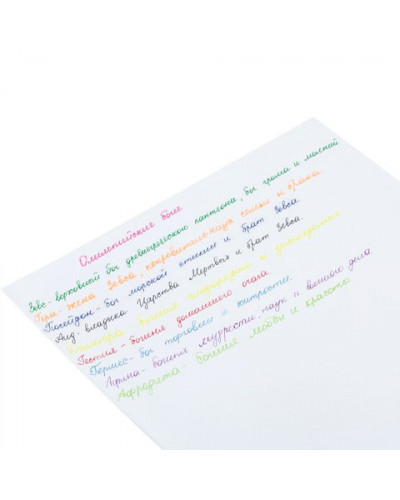 Олимпийские боги
Зевс - верховный бог древнегреческого пантеона, бог грома и молний
Гера - жена Зевса, покровительница семьи и брака
Посейдон - бог морской стихии и брат Зевса.
Аид - владыка Царства Мертвых и брат Зевса.
Деметра - богиня плодородия и земледелия
Гестия - богиня домашнего очага.
Гермес - бог торговли и хитрости.
Афина - богиня мудрости, наук и военного дела.
Афродита - богиня любви и красоты